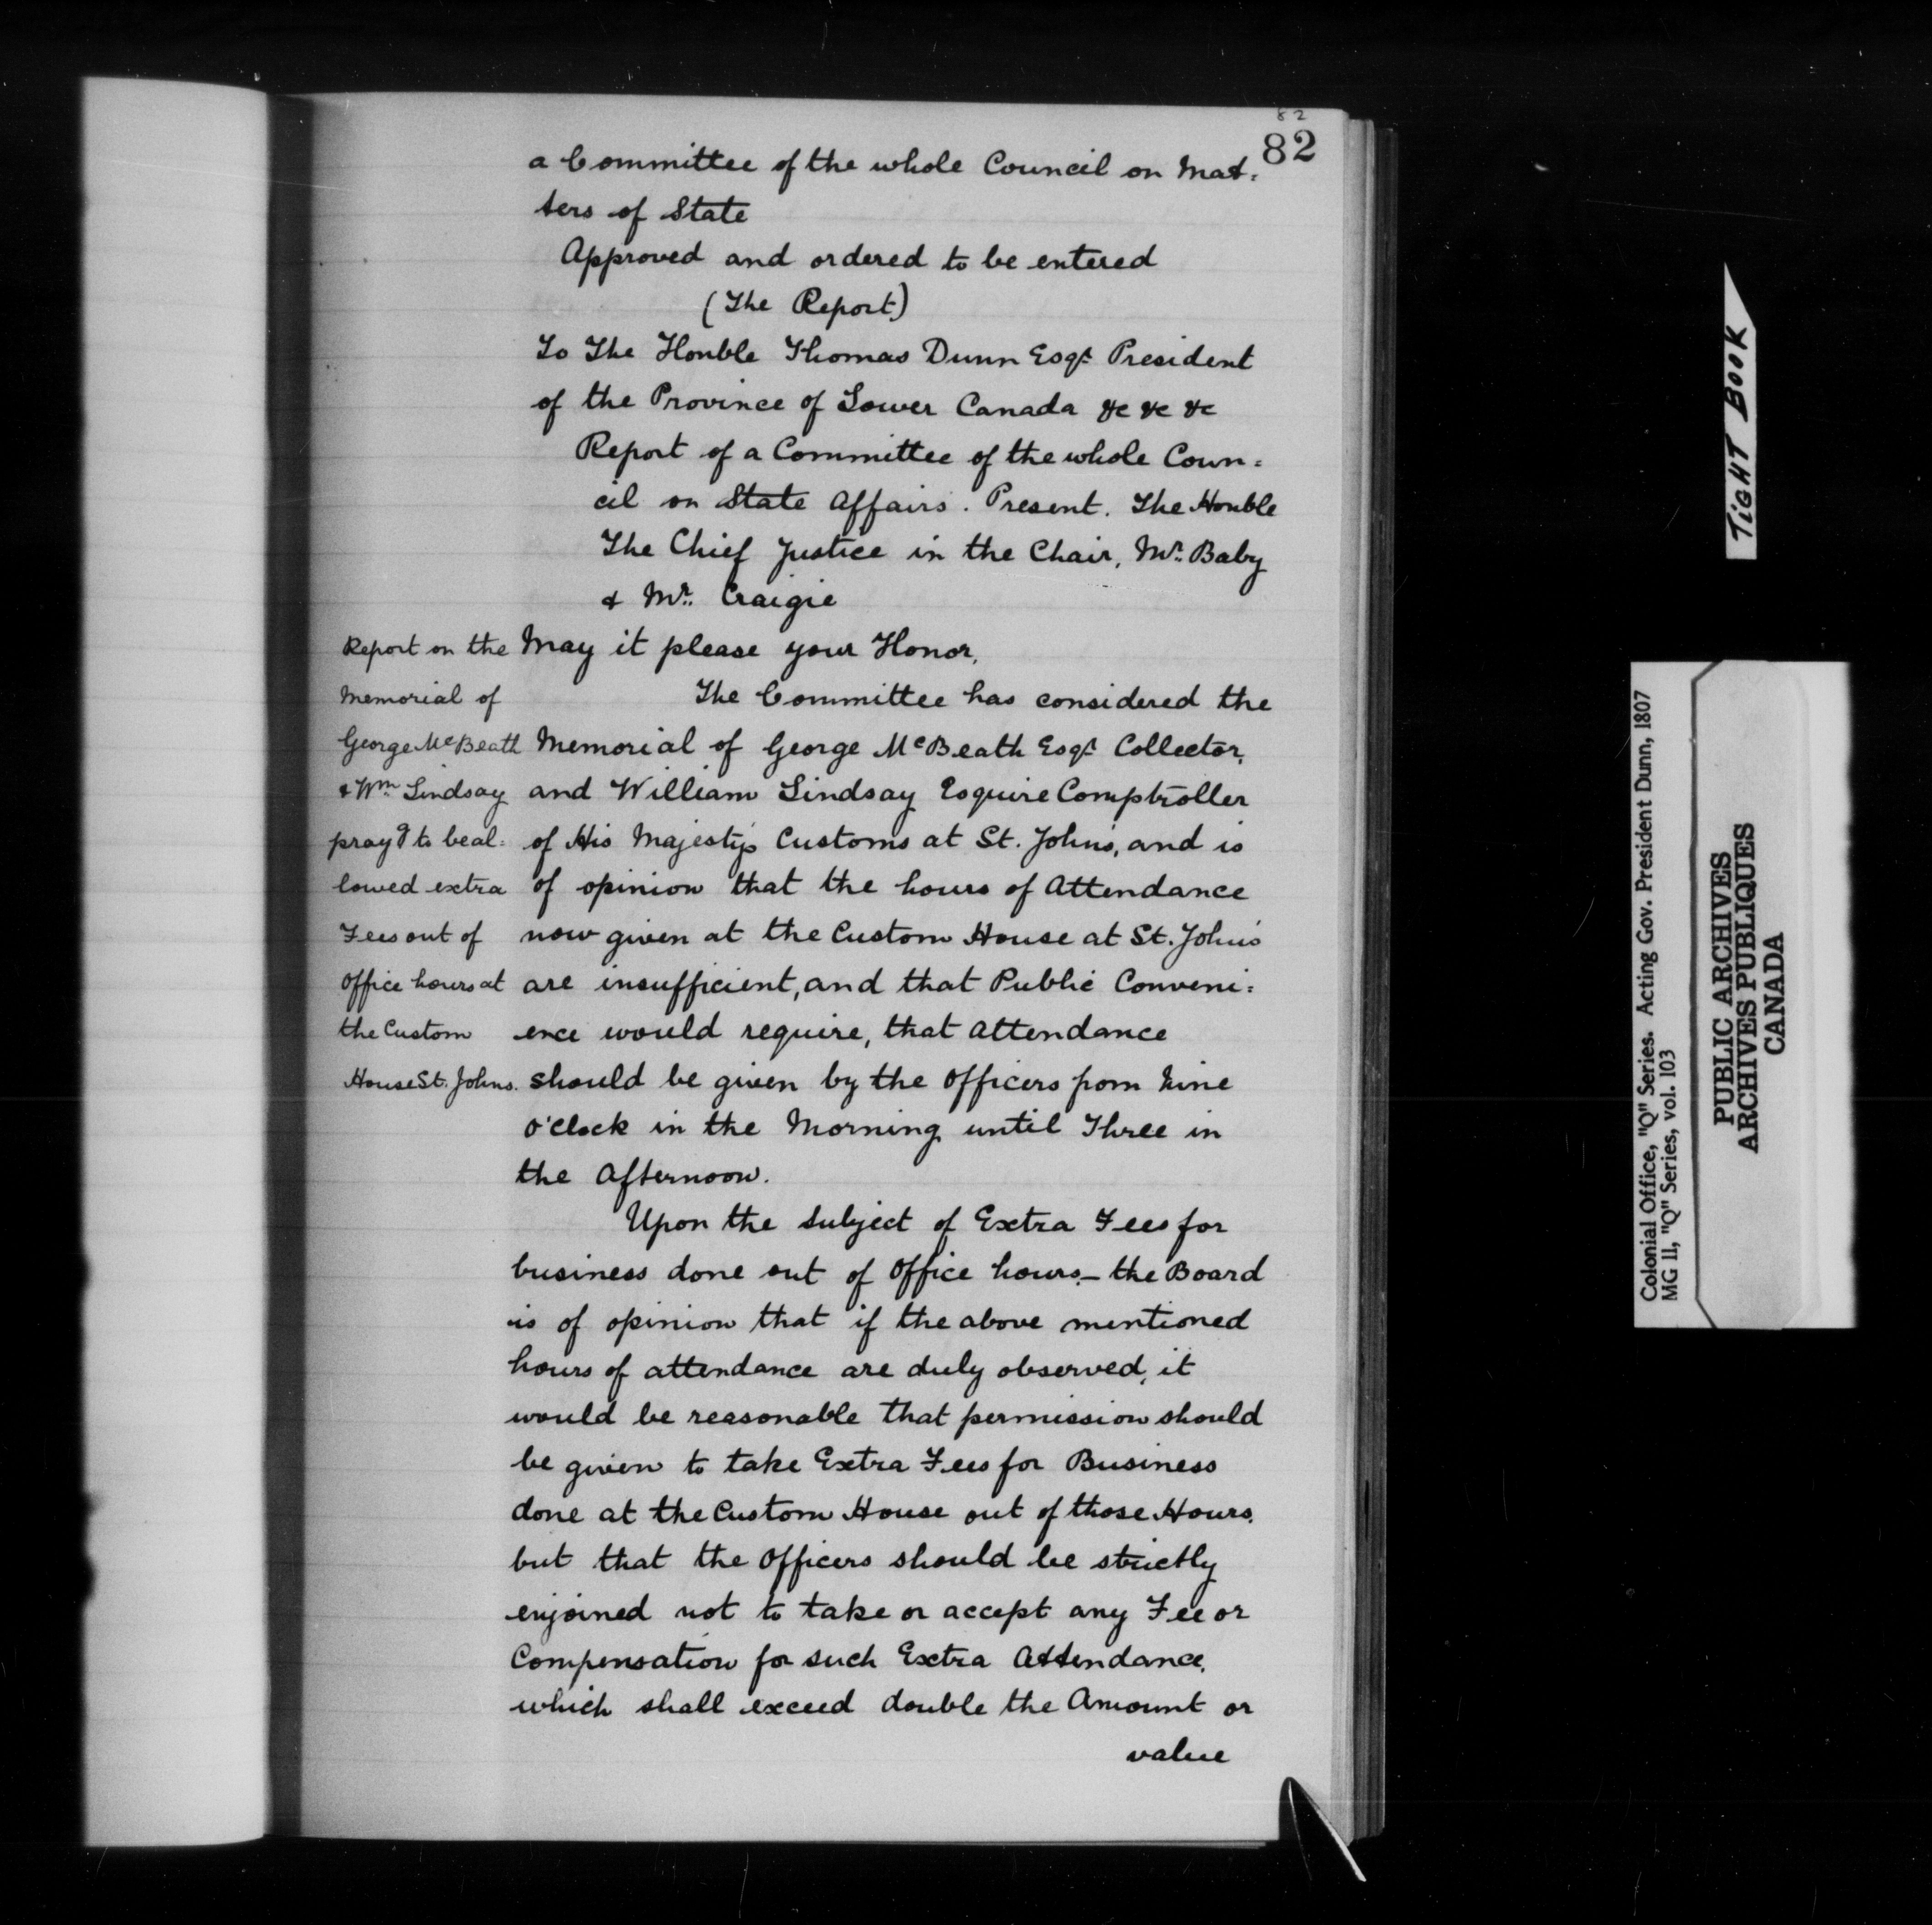 82
82
a Committee of the whole Council on Mat=
ters of State
Approved and ordered to be entered
(The Report)
To The Honble Thomas Dunn Esqr. President
of the Province of Lower Canada &c &c &c
Report of a Committee of the whole Coun=
cil on State Affairs. Present. The Honble
The Chief Justice in the Chair, Mr. Baby
& Mr. Craigie
May it please your Honor,
The Committee has considered the
Memorial of George McBeath Esqr. Collector,
and William Lindsay Esquire Comptroller
of His Majesty's Customs at St. John's, and is
of opinion that the hours of Attendance
now given at the Custom House at St. John's
are insufficient, and that Public Conveni=
ence would require, that attendance
should be given by the Officers from Nine
o'Clock in the Morning until Three in
the Afternoon.
Upon the subject of Extra Fees for
business done out of Office hours,— the Board
is of opinion that if the above mentioned
hours of attendance are duly observed, it
would be reasonable that permission should
be given to take Extra Fees for Business
done at the Custom House out of those Hours,
but that the Officers should be strictly
enjoined not to take or accept any Fee or
Compensation for such Extra Attendance,
which shall exceed double the Amount or
value
Report on the
Memorial of
George McBeath
& Wm. Lindsay
prayg to be al=
lowed extra
Fees out of
Office hours at
the Custom
House St. Johns.
TIGHT BOOK
Colonial Office, "Q" Series. Acting Gov. President Dunn, 1807
MG 11, "Q" Series, vol. 103
PUBLIC ARCHIVES
ARCHIVES PUBLIQUES
CANADA